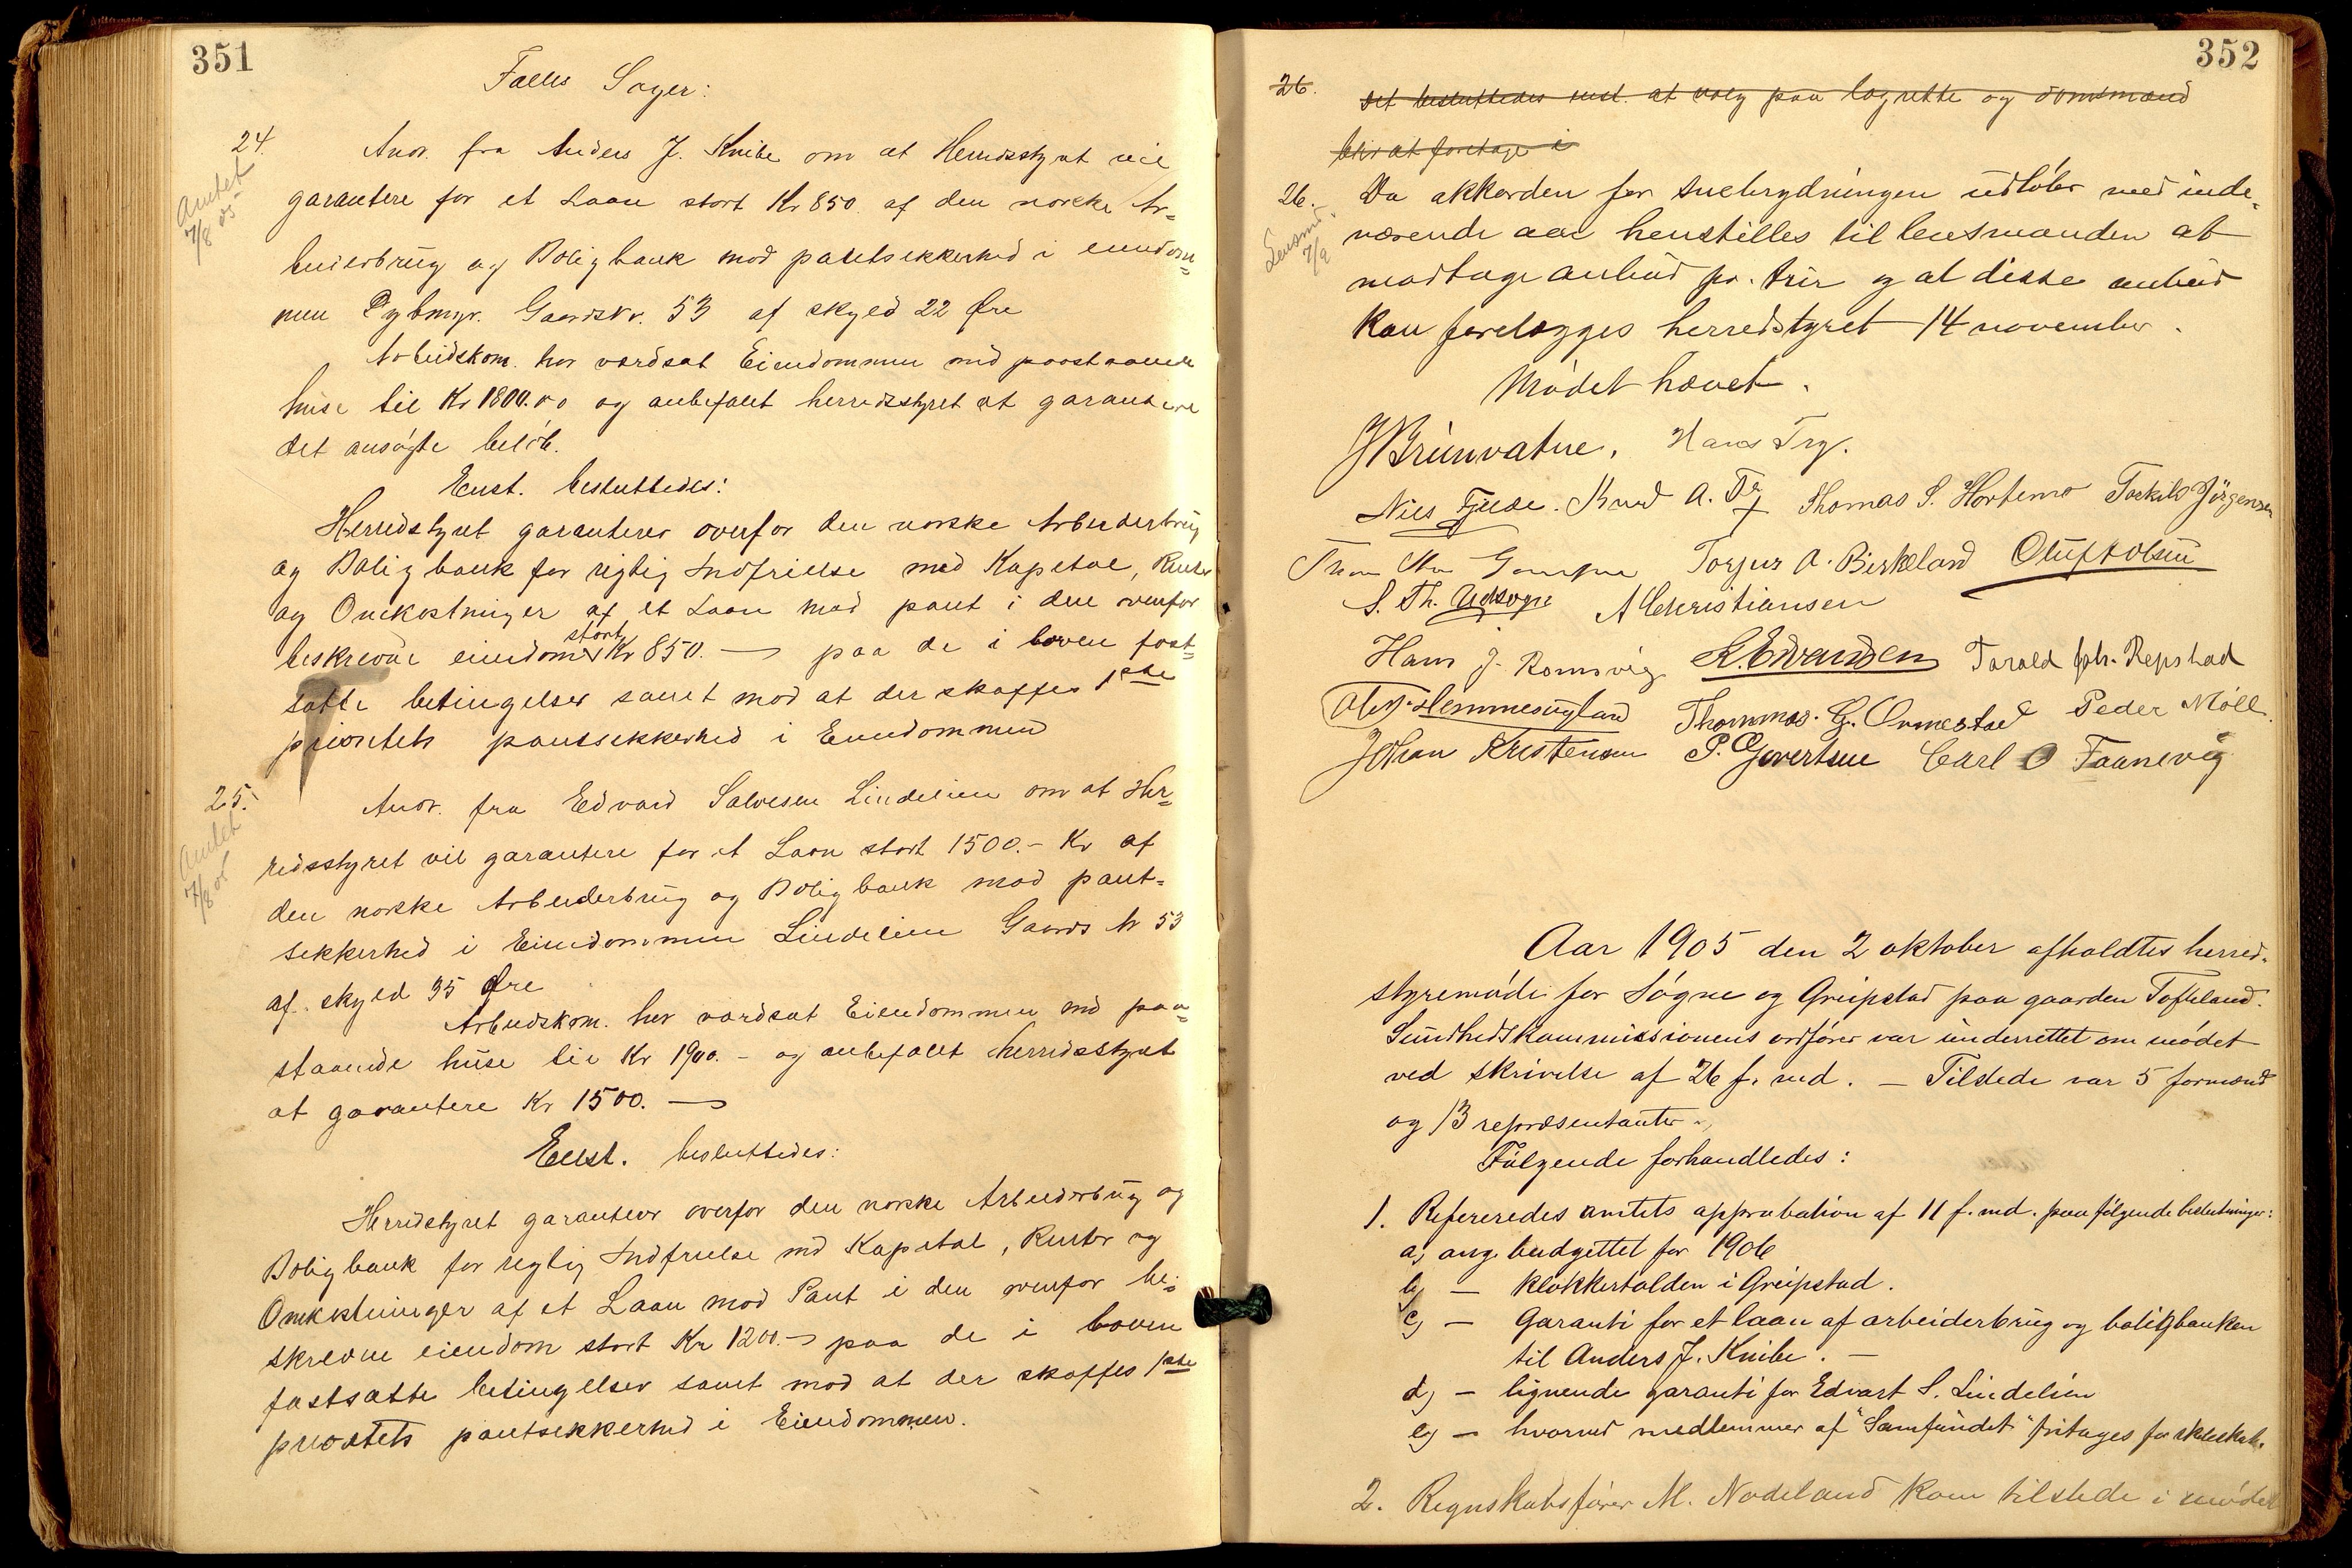 351
Fælles Sager:
24.
Amtet
7/8 05
Anv. fra Anders J. Knibe om at Herredsstyret vil
garantere for et Laan stort Kr 850. af den norske Ar-
beiderbrug og Boligbank mod pantsekkerhed i eiendom-
men Gaardsnr. 53 af skyld 22 Øre
Arbeidskom. har værdsat Eiendommen med paastaaende
huse til Kr 1800.00 og anbefalet herredsstyret at garantere
det ansøgte beløb.
Enst. besluttedes:
Herredstyret garanterer overfor den norske Arbeiderbrug
og Boligbank for rigtig Indfrielse med Kapital, Renter
og Omkostninger af et Laan mod pant i den ovenfor
beskrevne eiendom stort Kr 850.— paa de i loven fast-
satte betingelser samt mod at der skaffes 1ste
prioritets pantsekkerhed i Eiendommen
25.
Amtet
7/8 05
Anv. fra Edvard Salvesen Lindelien om at Her-
redsstyret vil garantere for et Laan stort 1500.- Kr af
den norske Arbeiderbrug og Boligbank mod pant-
sekkerhed i Eiendommen Lindelien Gaards Nr 53
af skyld 35 Øre
Arbeidskom. har værdsat Eiendommen med paa-
staaende huse til Kr 1900.- og anbefalet herredsstyret
at garantere Kr 1500.—
Enst. besluttedes:
Herredstyret garanterer overfor den norske Arbeiderbrug og
Boligbank for rigtig Indfrielse med Kapital, Renter og
Omkostninger af et Laan mod Pant i den ovenfor be-
skrevne eiendom stort Kr 1200.- paa de i loven
fastsatte betingelser samt mod at der skaffes 1ste
prioritets pantsekkerhed i Eiendommen.
352
26. Det besluttedes enst. at valg paa lagrette og domsmænd
blir at foretage i
26. Da akkorden for snebrydningen udløber med inde-
Lensmd.
7/9
værende aar henstilles til lensmanden at
modtage anbud pr. trir og at disse anbud
kan forelægges herredstyret 14 november.
Mødet hævet.
J Brunvatne. Hans Try.
Nils Tjelde. Knud A. Try Thomas S. Hortemo Torkild Jørgensen
Torjus A. Birkeland Oluf A Olsen
S. Th. Udsogn A Christiansen
Hans J. Romsvig K. Edvardsen Tarald Joh. Repstad
Ole J. Hemmesugland Thommas. G. Ormestad Peder Møll.
Johan Kristensen P. Govertsen Carl O Faanevig
Aar 1905 den 2 oktober afholdtes herred-
styremøde for Søgne og Greipstad paa gaarden Tofteland.
Sundhedskommissionens ordfører var underrettet om mødet
ved skrivelse af 26 f. md. — Tilstede var 5 formænd
og 13 repræsentanter.
Følgende forhandledes:
1. Refereredes amtets approbation af 11 f. md. paa følgende beslutninger:
a, ang. budgettet for 1906
b, — klokkertolden i Greipstad.
c, — Garanti for et laan af arbeiderbrug og boligbanken
til Anders J. Knibe. —
d, — lignende garanti for Edvart S. Lindelien
e, — hvorved medlemmer af "Samfundet" fritages for skoleskat.
2. Regnskabsfører M. Nodeland kom tilstede i mødet